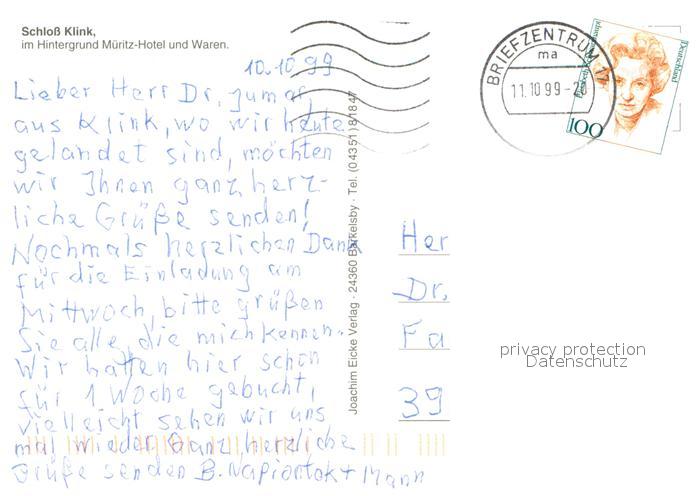 Schloß Klink,
im Hintergrund Müritz-Hotel und Waren.
10.10.99
Lieber Herr Dr.
aus Klink, wo wir heute
gelandet sind, möchten
wir Ihnen ganz herz-
liche Grüße senden!
Nochmals herzlichen Dank
für die Einladung am
Mittwoch, bitte grüßen
Sie alle, die mich kennen.
Wir hatten hier schon
für 1 Woche gebucht,
vielleicht sehen wir uns
mal wieder. Ganz herzliche
Grüße senden B. Napiontek + Mann
Joachim Eicke Verlag · 24360 Barkelsby · Tel. (04351) 81847
BRIEFZENTRUM 17
ma
11.10.99-21
Deutschland
100
Her
Dr.
Fa
39
privacy protection
Datenschutz